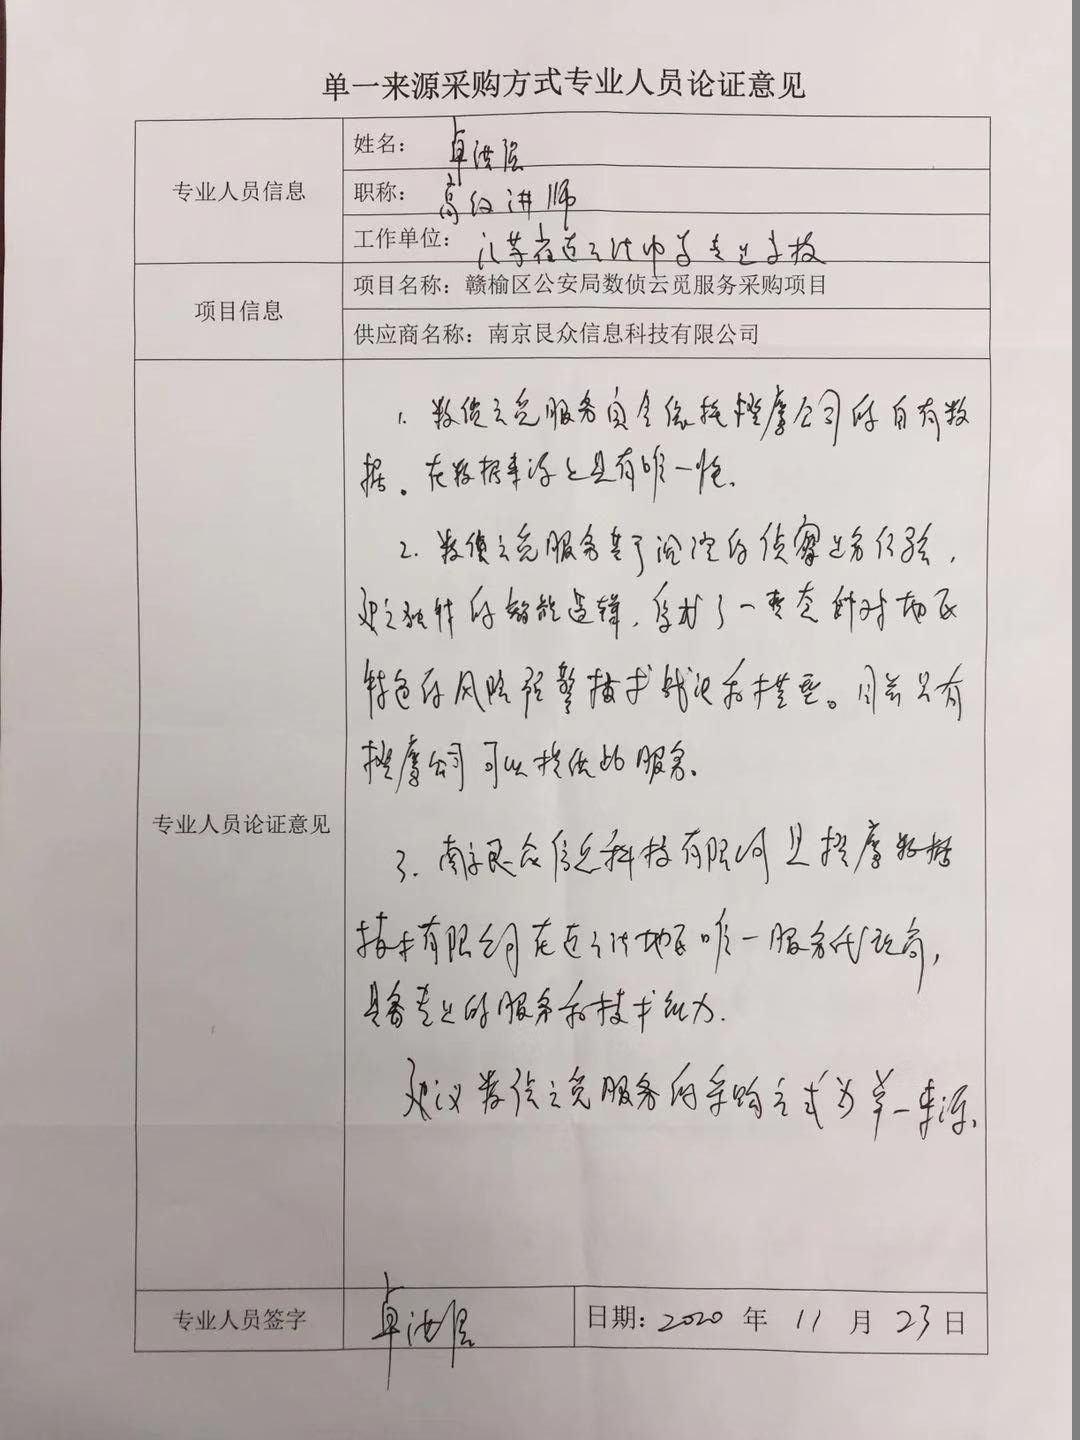 单一来源采购方式专业人员论证意见
专业人员信息
姓名：卓洪
职称：高级讲师
工作单位：江苏省连云港中等专业学校
项目信息
项目名称：赣榆区公安局数侦云觅服务采购项目
供应商名称：南京艮众信息科技有限公司
专业人员论证意见
1. 数侦云觅服务完全依托摩公司的自有数
据。在数据来源上具有唯一性。
2. 数侦云觅服务基于的侦察业务经验，
建立独特的智能逻辑，形成了一整套针对地区
特色的风险预警技术战法和模型。目前只有
摩公司可以提供此服务。
3. 南京艮众信息科技有限公司是摩数据
技术有限公司在连云港地区唯一服务代理商，
具备专业的服务和技术能力.
建议数侦云觅服务的采购方式为单一来源.
专业人员签字
卓洪
日期：2020 年 11 月 23 日